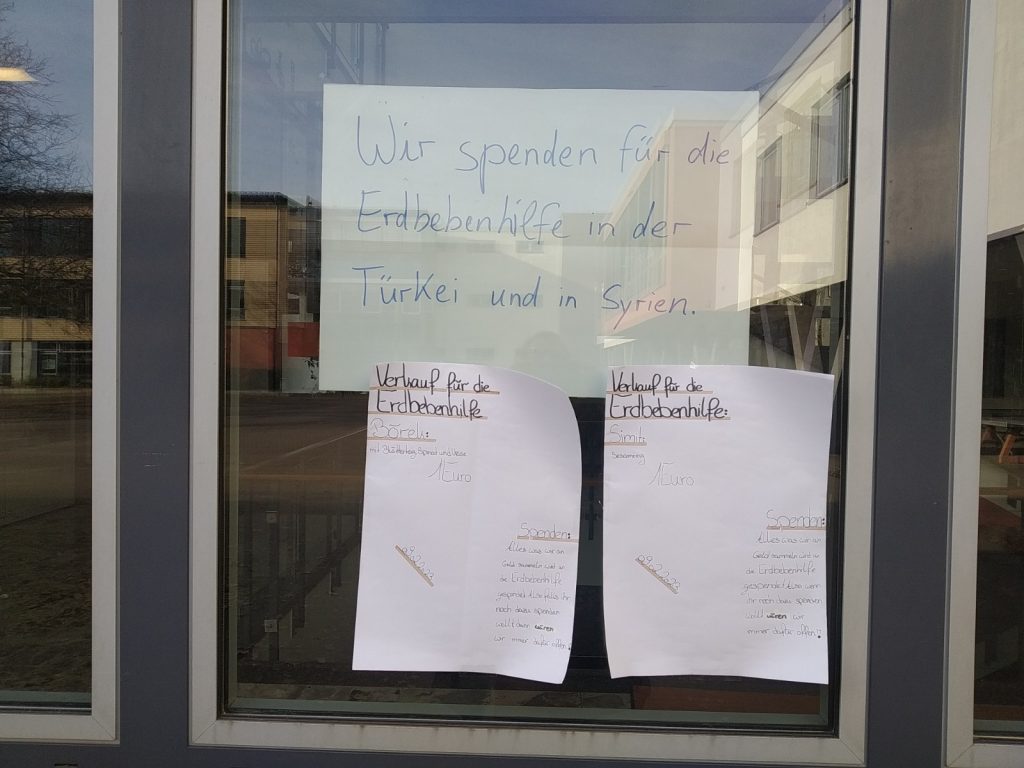 Wir spenden für die
Erdbebenhilfe in der
Türkei und in Syrien.
Verkauf für die
Erdbebenhilfe
Börek:
mit Blätterteig, Spinat und Käse
1 Euro
Spenden:
Alles was wir an
Geld sammeln wird an
die Erdbebenhilfe
gespendet Also falls ihr
noch dazu spenden
wollt dann wären
wir immer dafür offen!
Verkauf für die
Erdbebenhilfe:
Simit:
Sesamring
1 Euro
Spenden:
Alles was wir an
Geld sammeln wird an
die Erdbebenhilfe
gespendet Also wenn
ihr noch dazu spenden
wollt wären wir
immer dafür offen!